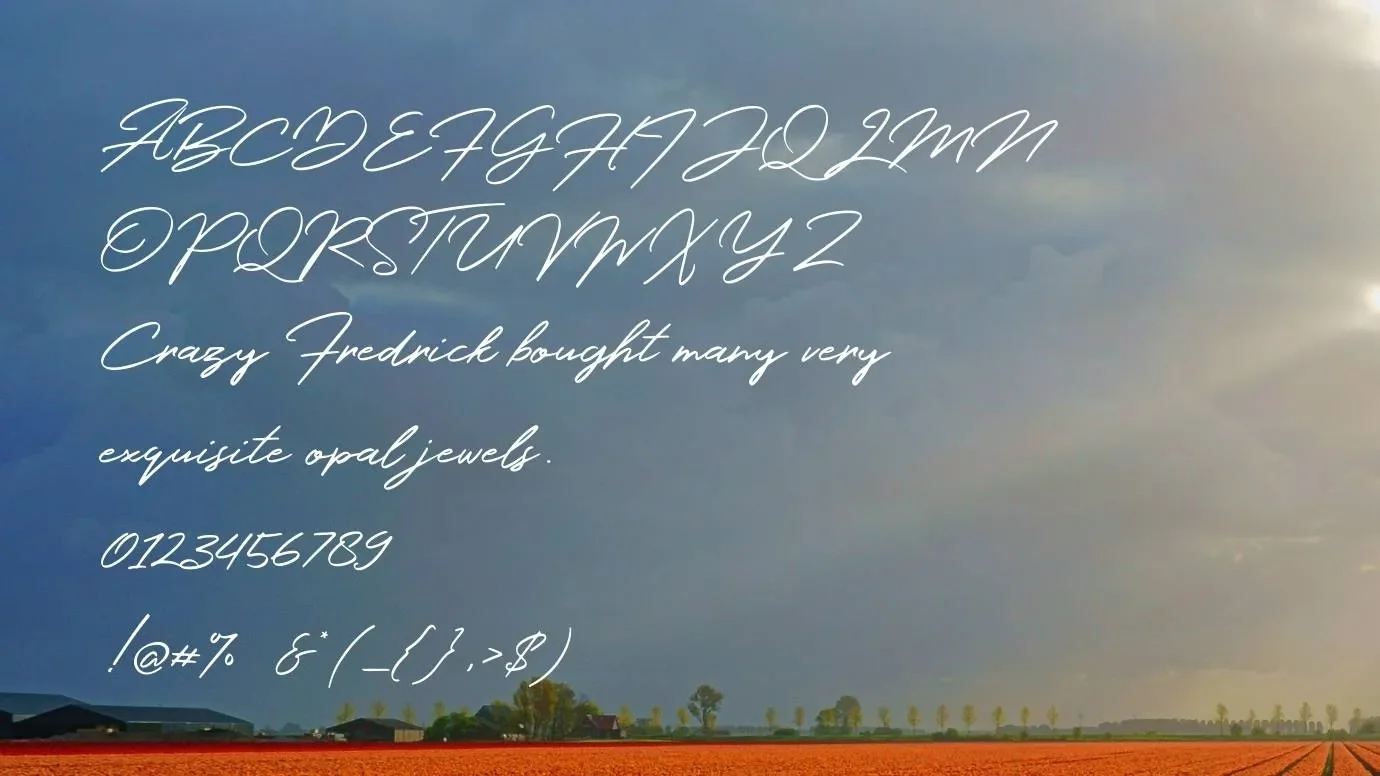 ABCDEFGHIJQLMN
OPQRSTUVWXYZ
Crazy Fredrick bought many very
exquisite opal jewels.
0123456789
!@#% &*(_{},>$)